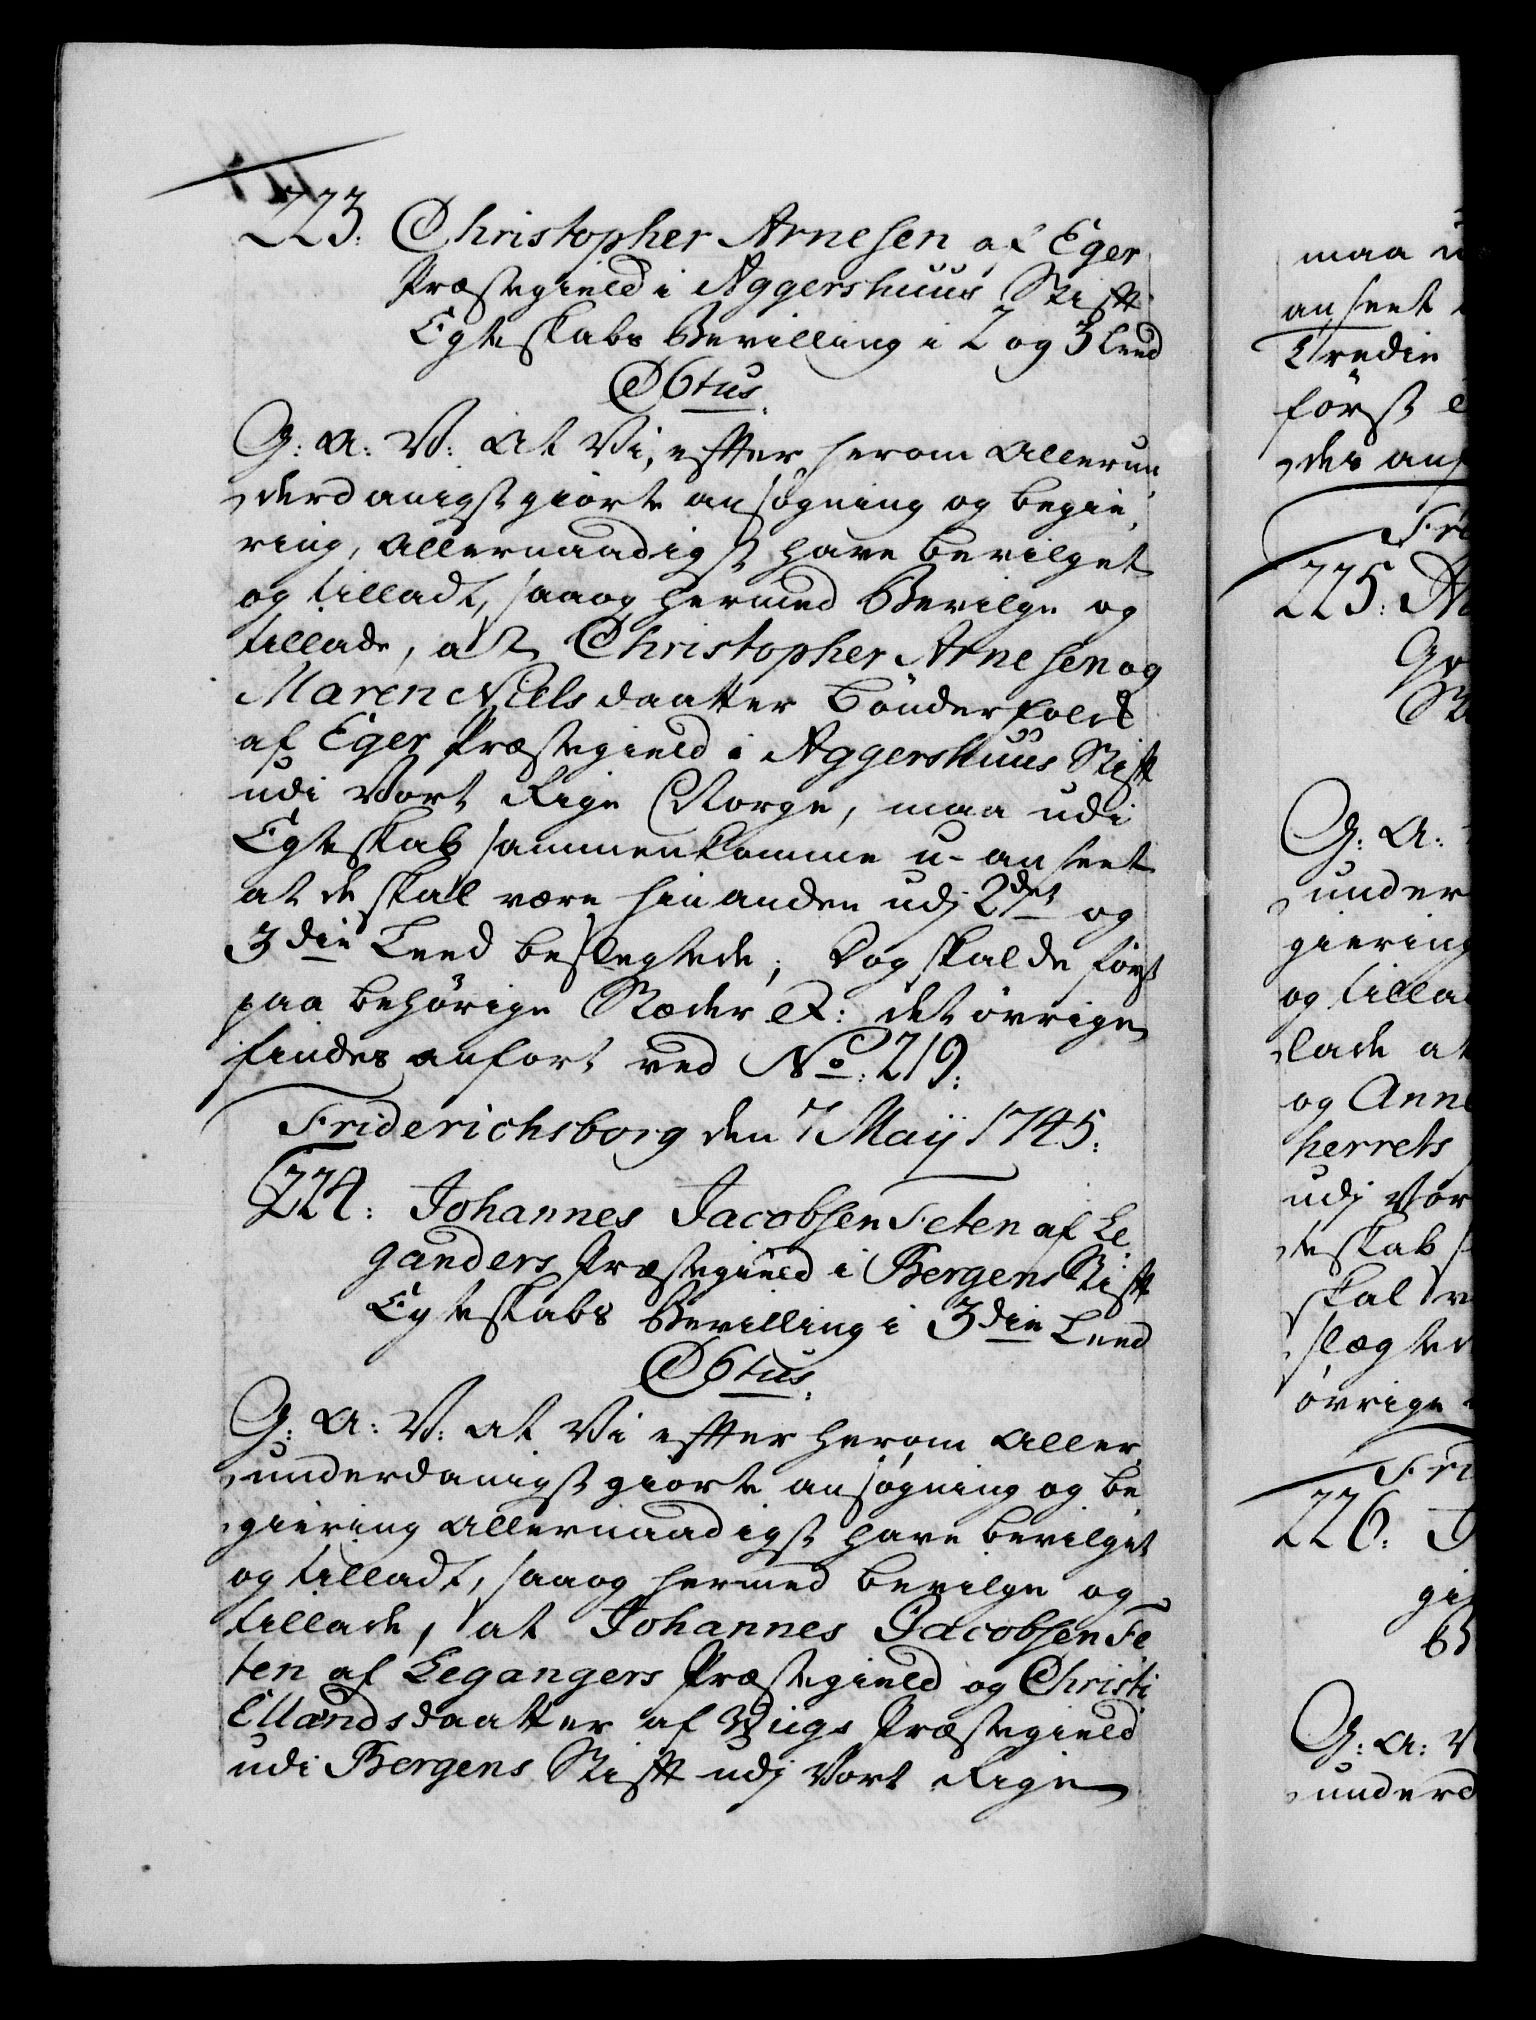 223. Christopher Arnesen af Eger
Præstegield i Aggershuus Stift
Egteskabs Bevilling i 2 og 3 Leed
Gr̃tus.
G: A: V: At Vi, efter herom Allerun
derdanigst giorte ansøgning og begie,
ring, allernaadigst have bevilget
og tilladt, saa og hermed Bevilge og
tillade, at Christopher Arnesen og
Maren Nielsdaatter Bønderfolck
af Eger Præstegield i Aggershuus Stift
udi Vort Rige Norge, maa udi
Egteskab sammenkomme u-anseet
at de skal være hinanden udj 2det og
3die Leed beslegtede; Dog skal de først
paa behørige Stæder &: det øvrige
findes anført ved No: 219:
Friderichsborg den 7 Maij 1745:
224: Johannes Jacobsen Feten af Le
ganders Præstegield i Bergens Stift
Egteskabs Bevilling i 3die Leed
Gr̃tus.
G: A: V: At Vi efter herom Aller,
underdanigst giorte ansøgning og be
giering allernaadigst have bevilget
og tilladt, saa og hermed bevilge og
tillade, at Johannes Jacobsen Fe
ten af Legangers Præstegield og Christi
Ellandsdaatter af Viigs Præstegield
udi Bergens Stift udj Vort Rige
maa
anseet
Tredie
først
des
Fri
225:
G: A:
under
giering
og tilla
lade at
og Anne
herrets
udj Vor
teskab
skal
slægted
øvrige
Fri
226:
G: A: V
underd